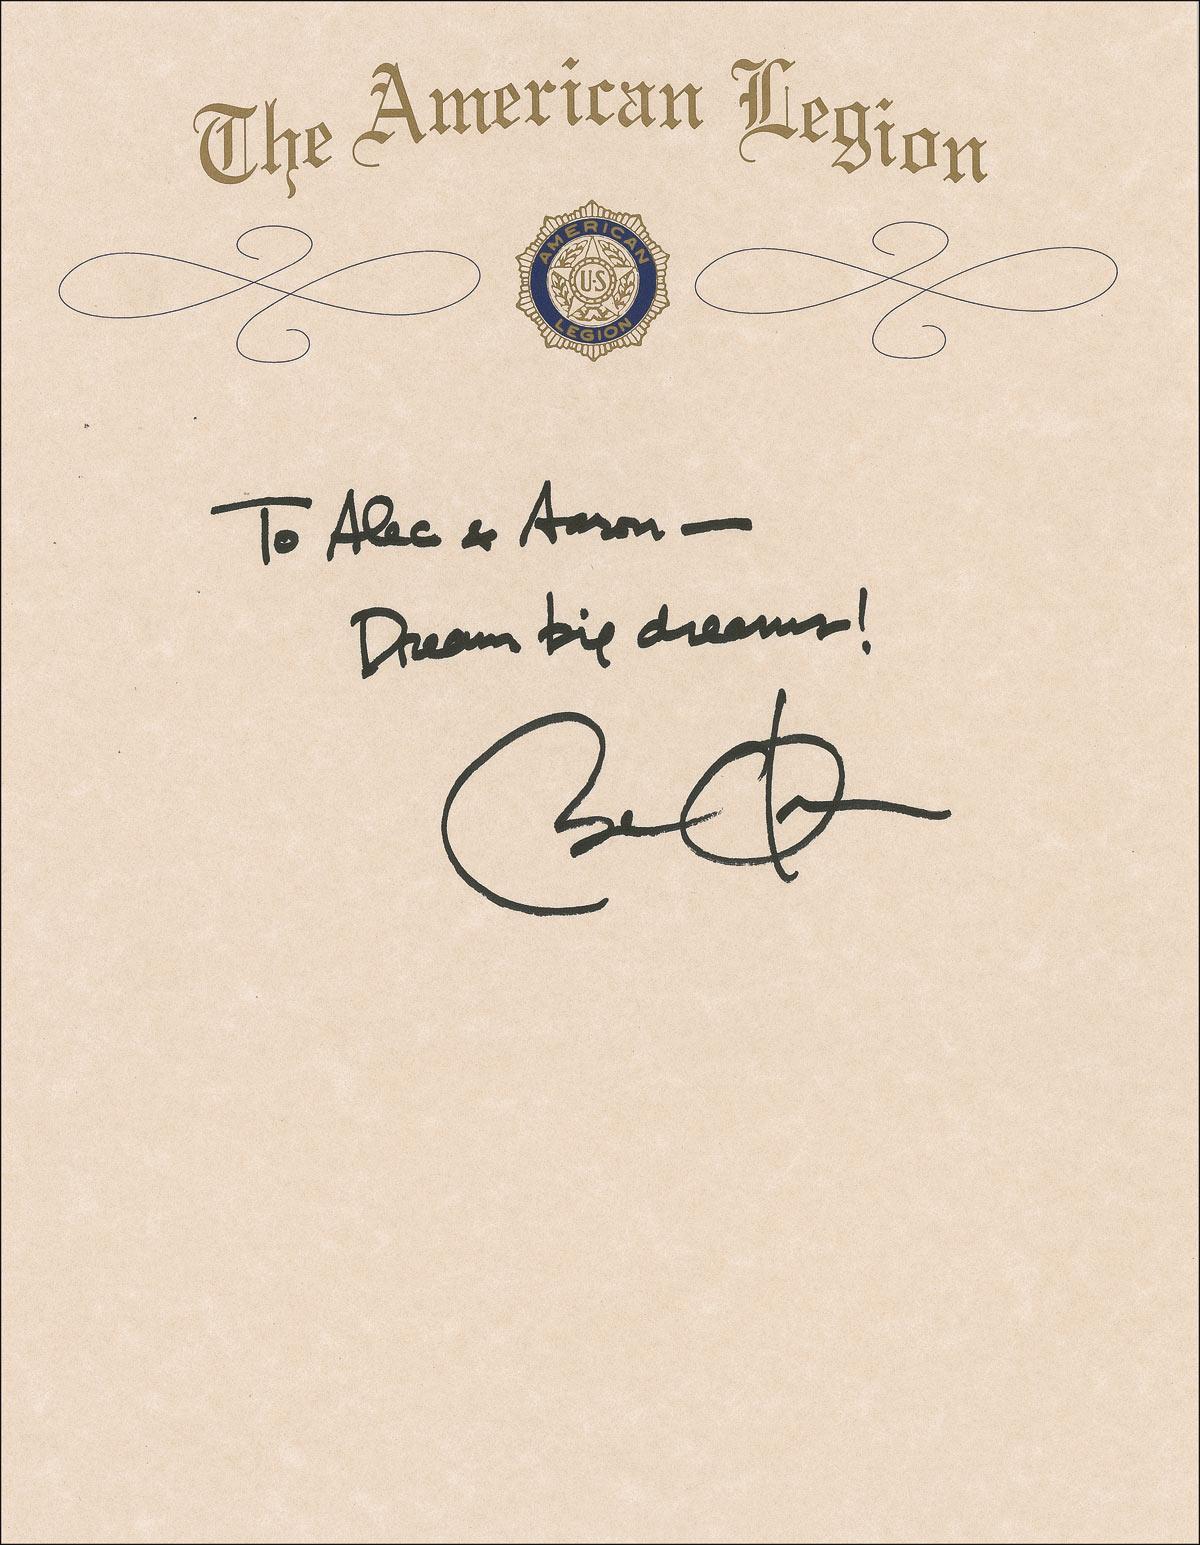 The American Legion
AMERICAN
U·S
LEGION
To Alec & Aaron —
Dream big dreams!